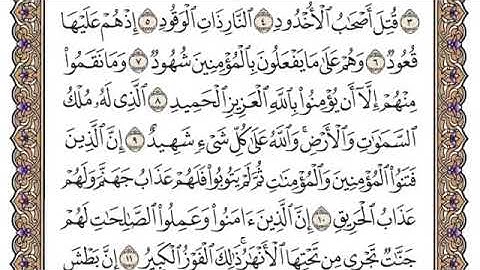 ٣ قُتِلَ أَصْحَابُ الْأُخْدُودِ ٤ النَّارِ ذَاتِ الْوَقُودِ ٥ إِذْ هُمْ عَلَيْهَا
قُعُودٌ ٦ وَهُمْ عَلَىٰ مَا يَفْعَلُونَ بِالْمُؤْمِنِينَ شُهُودٌ ٧ وَمَا نَقَمُوا
مِنْهُمْ إِلَّا أَن يُؤْمِنُوا بِاللَّهِ الْعَزِيزِ الْحَمِيدِ ٨ الَّذِي لَهُ مُلْكُ
السَّمَاوَاتِ وَالْأَرْضِ ۚ وَاللَّهُ عَلَىٰ كُلِّ شَيْءٍ شَهِيدٌ ٩ إِنَّ الَّذِينَ
فَتَنُوا الْمُؤْمِنِينَ وَالْمُؤْمِنَاتِ ثُمَّ لَمْ يَتُوبُوا فَلَهُمْ عَذَابُ جَهَنَّمَ وَلَهُمْ
عَذَابُ الْحَرِيقِ ١٠ إِنَّ الَّذِينَ ءَامَنُوا وَعَمِلُوا الصَّالِحَاتِ لَهُمْ
جَنَّاتٌ تَجْرِي مِن تَحْتِهَا الْأَنْهَارُ ۚ ذَٰلِكَ الْفَوْزُ الْكَبِيرُ ١١ إِنَّ بَطْشَ